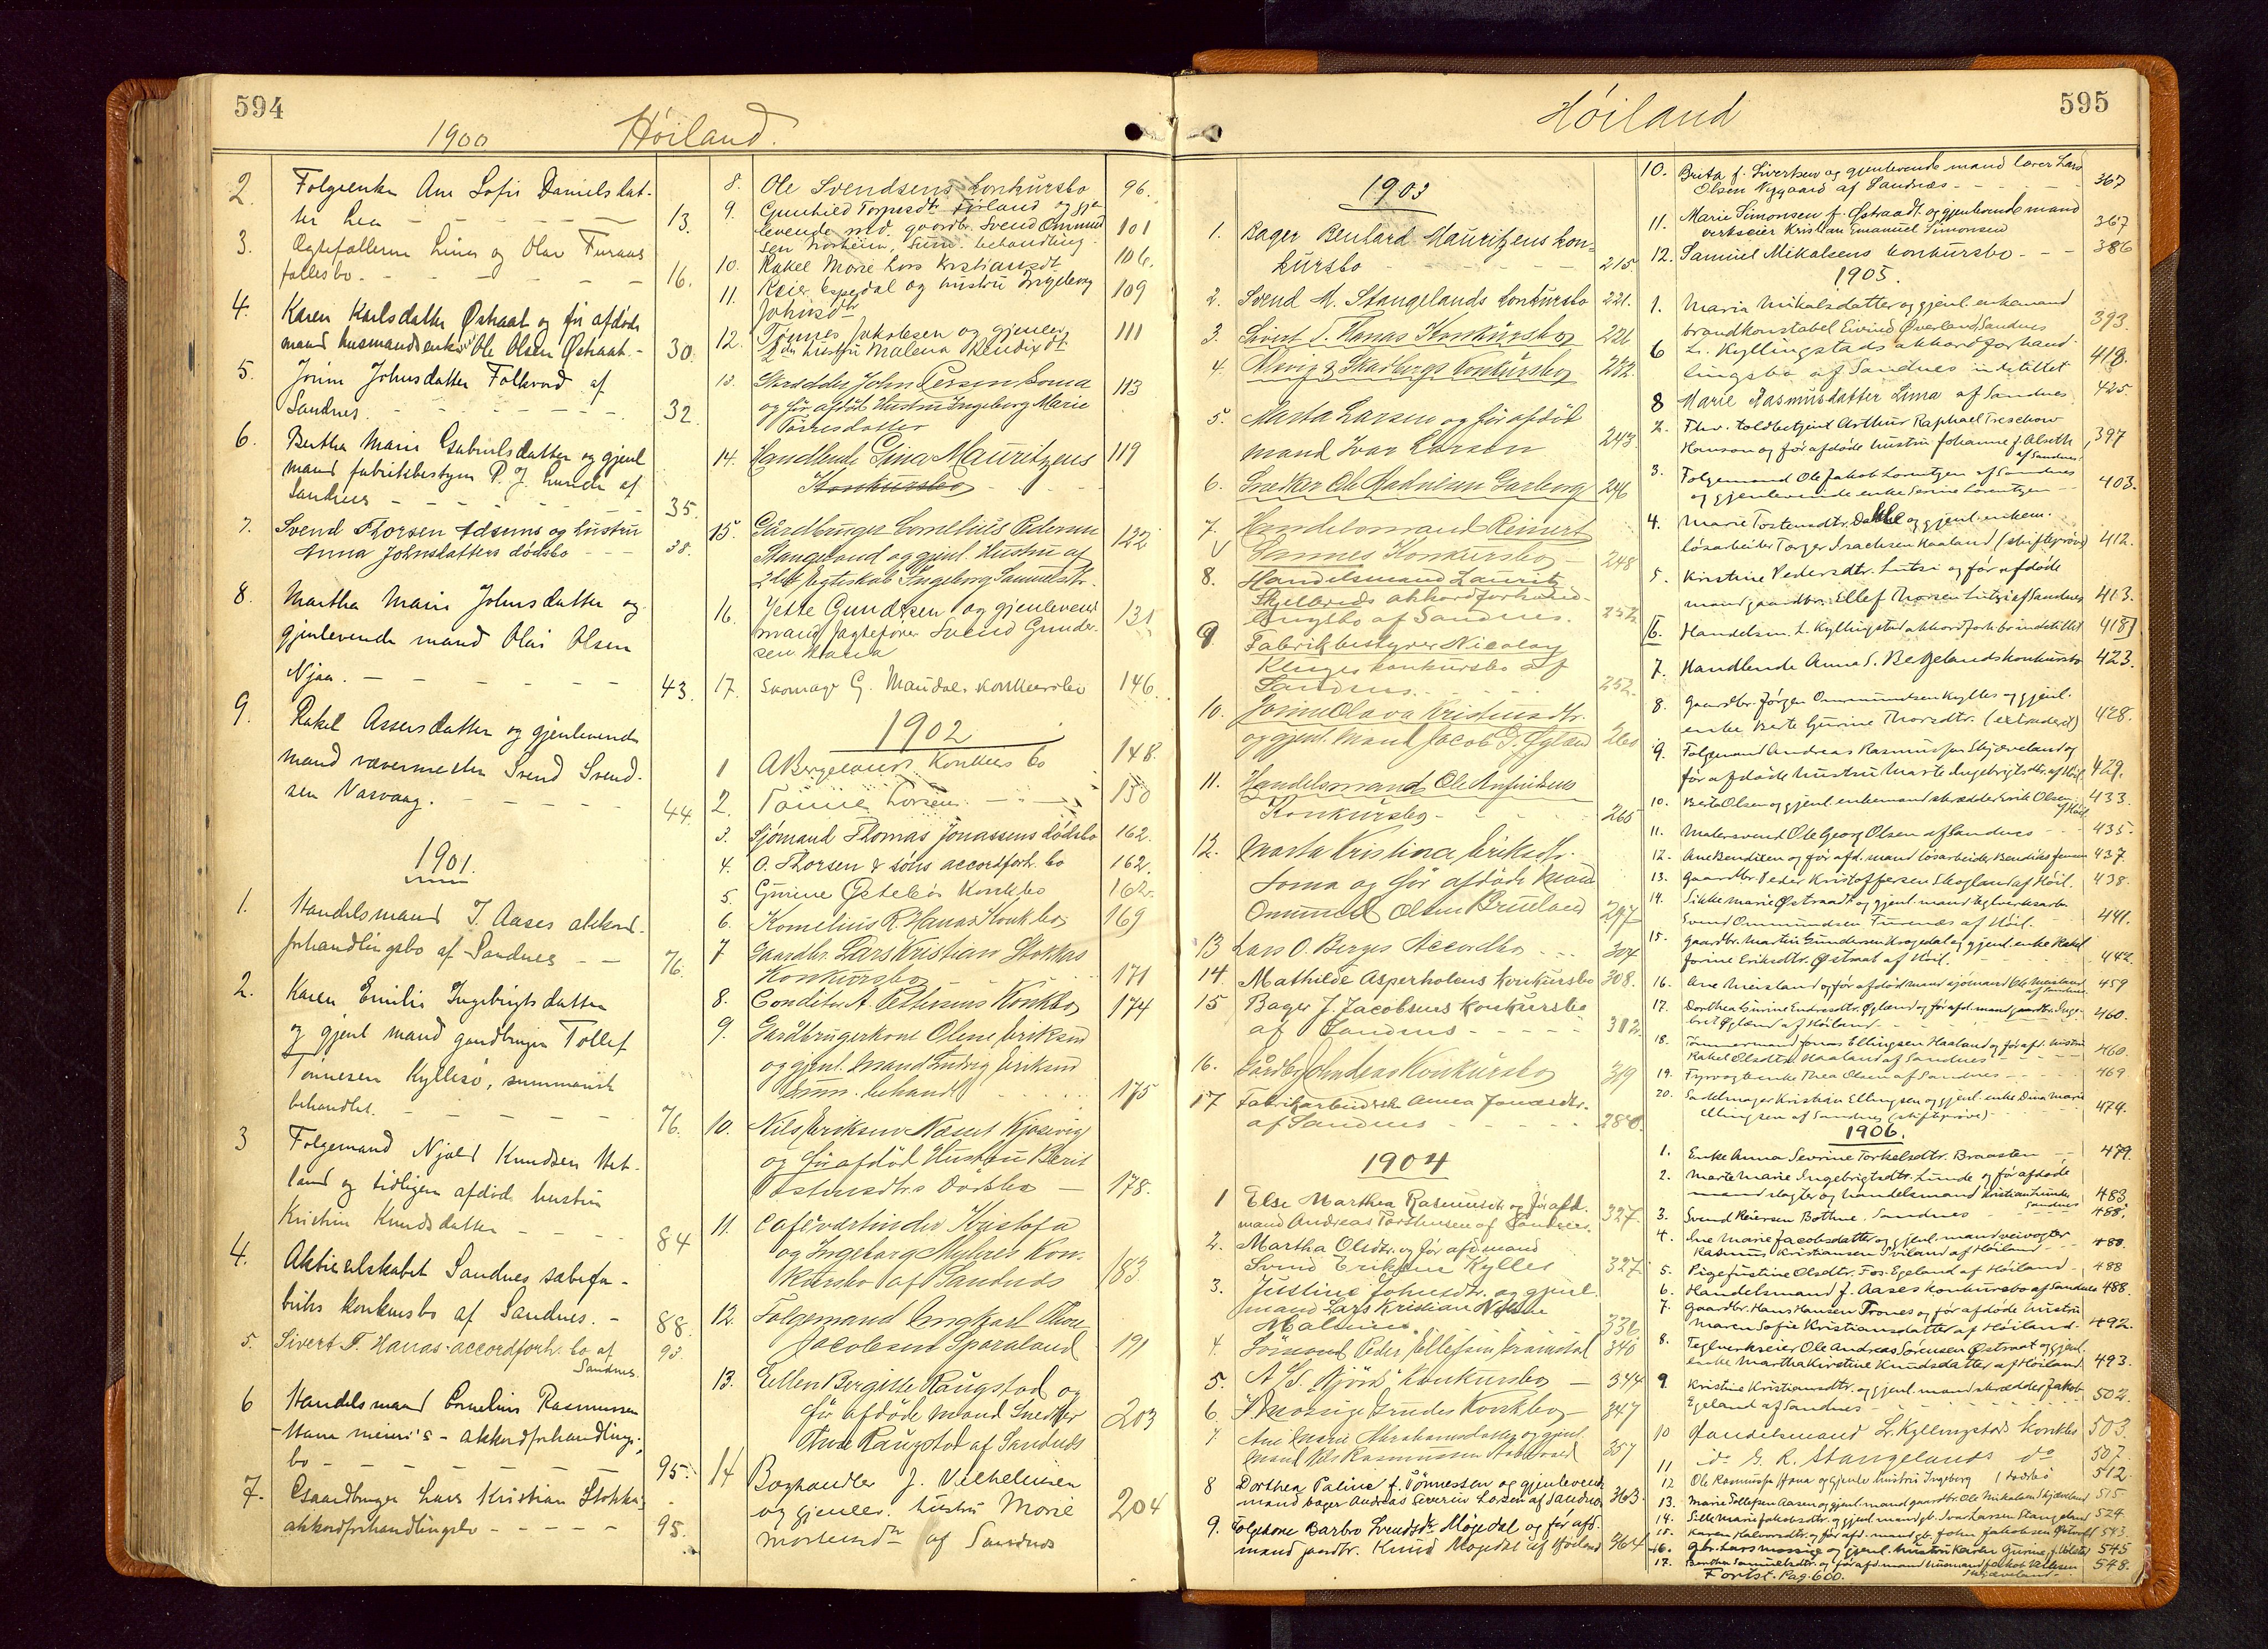 594
1900 Höiland.
2. Folgeenke Ane Sofie Danielsdat-
ter Lea - - - 13.
3. Ægtefællerne Lines og Olav
fællesbo - - - 16.
4. Karen Karlsdatter Østraat og før afdøde
mand husmand Ole Olsen Østraat. - 30.
5. Jorine Johnsdatter Folkvord af
Sandnes. - - - 32.
6. Bertha Marie Gabrielsdatter og gjenl
mand fabrikbestyrer P. J. Lunde af
Sandnes - - - 35.
7. Svend Thorsen Adsens og hustru
Anna Johnsdatters dødsbo - - - 38.
8. Martha Marie Johnsdatter og
gjenlevende mand Olai Olsen
Njaa. - - - 43.
9. Rakel Assersdatter og gjenlevende
mand vævermester Svend Svend-
sen Varvaag. - - - 44.
1901.
1. Handelsmand J. Aases akkord-
forhandlingsbo af Sandnes - - 76.
2. Karen Emilie Ingebrigtsdatter
og gjenl mand gardbruger Tollef
Tønnesen Kyllesø, summarisk
behandlet. - - - 76.
3 Folgemand Njæl Knudsen Vet-
land og tidligere afdøde hustru
Kristine Knudsdatter - - - 84
4. Aktieselskabet Sandnes sæbefa-
briks konkursbo af Sandnes. - 88.
5. Sivert T. Hanas accordforh. bo af 93.
Sandnes.
6 Handelsmand Cornelius Rasmussen
Hana meieri's - akkordforhandlings-
bo - - - 95.
7. Gaardbruger Lars Kristian Stokka's
akkordforhandlingsbo - - - 95.
8. Ole Svendsens konkursbo 96.
9. Gunhild Torgersdtr. og gjen-
levende md. gaardbr. Svend Ommund
sen Norheim, sum. behandling. 101
10. Rakel Marie Lars Kristiansdt. 106.
11. Reier Espedal og hustru Ingeborg 109
Johnsdtr
12. Tønnes Jakobsen og gjenlev. 111
2den hustru Malena Bendixdt.
13. Skrædder John Persen Soma 113
og før afdød Hustru Ingeborg Marie
Torresdatter
14. Handlende Gina Mauritzens 119
Konkursbo - -
15. Gårdbruger Cornelius Pedersen
Stangeland og gjenl. Hustru af 122
2det Egteskab Ingeborg Samuelsdtr.
16. Jette Gundersen og gjenlevend 131
mand Jagtefører Svend Gunder-
sen Hana
17. Skomager G. Maudals konkursbo 146.
1902
1 A Bergelands Konkurs bo 148.
2. Tønnes Larsens 150
3. Sjömand Thomas Jonassens dödsbo 162.
4. O. Thorsen & søns accordforh. bo 162.
5. Gurine Østebös Konkbo 162.
6. Kornelius R. Hanas Konkbo 169
7 Gaardbr. Lars Kristian Stokkas
Konkursbo 171
8. Conditor A. Pettersens Konkbo 174
9. Gardbrugerkone Olene Eriksen
og gjenl. mand Ludvig Eriksen
Sum. behandl. 175
10. Nils Eriksen Næset Kjosevig
og før afdöd Hustru Berit
Østensdtr.s Dødsbo - 178.
11. Caféværtinder Kristofa
og Ingeborg Myhres Kon-
kursbo af Sandnes 183
12. Folgemand Ingkast Thore
Jacobsen Sparaland 191
13. Ellen Bergitte Raugstad og
før afdöde mand Snedker 203
Thore Raugstad af Sandnes
14 Boghandler J. Vilhelmsen
og gjenlev. hustru Marie 204
Mortensdtr af Sandnes
Höiland 595
1903
1. Bager Benhard Mauritzens kon-
kursbo - - - 215.
2. Svend M. Stangelands konkursbo 221.
3. Sivert T. Hanas Konkursbo 226
4. Alsvig & Skadbergs Konkursbo 232.
5. Marta Larsen og før afdöd
mand Ivar Larsen 243.
6. Snekker Ole Gabrielsen Garborg 246
7. Handelsmand Reinert
Hannes Konkursbo - 248
8. Handelsmand Lauritz
Skjelbreds akkordforhand-
lingsbo af Sandnes. 252
9 Fabrikbestyrer Nicolay
Kluges konkursbo af
Sandnes. 252.
10. Jorine Olava Kristensdtr.
og gjenl. Mand Jacob S. Øgland 260
11. Handelsmand Ole Anfindsens
Konkursbo - 265
12. Marta Kristina Eriksdtr.
Soma og før afdöde Mand
Ommund Olsen Brueland 297
13 Lars O. Berges Accordbo 304
14. Mathilde Asperholens konkursbo 308.
15 Bager J. Jacobsens konkursbo
af Sandnes - - - 312.
16. Gårdbr. Konkursbo 319
17 Fabrikarbeiderske Anna Jonasdtr.
af Sandnes - - - 280.
1904
1 Else Marthea Rasmusdtr og før afd.
mand Andreas Torstensen af Sandnes. 327.
2. Martha Olsdtr. og før afd. mand
Svend Eriksen Kylles 327.
3. Justine Johnsdtr. og gjenl.
mand Lars Kristian Nilsen
Malmin. 336
4. Sømand Peder Ellefsen 340
5. A/S. "Njörd" konkursbo - 344
6. Konkbo - 347
7 Ane Marie Abrahamsdatter og gjenl.
mand Nils Rasmussen 357
8 Dorthea Paline f. Tönnessen og gjenlevende
mand bager Andreas Severin Larsen af Sandnes 363.
9. Folgekone Barbro Svendsdtr Mögedal og før afd.
mand gaardbr. Knud Mögedal af Høiland 364
10. Berta f. Sivertsen og gjenlevende mand lærer Lars
Olsen Nygaard af Sandnes - - - 367
11. Marie Simonsen f. Østraadt. og gjenlevende mand
verkseier Kristian Emanuel Simonsen 367
12. Samuel Mikalsens konkursbo - - - 386
1905.
1. Maria Mikalsdatter og gjenl. enkemand
brandkonstabel Eivind Øverland, Sandnes 393.
6 L. Kyllingstads akkordforhand-
lingsbo af Sandnes indstillet 418.
8 Marie Rasmusdatter Lima af Sandnes 425.
2. Fhv. toldbetjent Arthur Raphael Treschow
Hanson og før afdøde hustru Johanne f. Alseth 397
af Sandnes.
3. Folgemand Ole Jakob Lorentzen af Sandnes
og gjenlevende enke Serine Lorentzen - 403.
4. Marie Tostensdtr. og gjenl. enkem.
løsarbeider Torger Isachsen Haaland (skifteprøve) 412.
5. Kristine Pedersdtr. Lutsi og før afdøde
mand gaardbr. Ellef Thorsen Lutsi af Sandnes 413.
[6. Handelsm. L. Kyllingstad akkordforh. bo indstillet 418]
7. Handlende Anna S. Bergelands konkursbo 423.
8. Gaardbr. Jørgen Ommundsen Kylles og gjenl.
enke Berte Gurine Thorsdtr. (extraderet) 428.
9. Folgemand Andreas Rasmussen Skjæveland og
før afdøde hustru Marte Ingebrigtsdtr. af Høil. 429.
10. Berte Olsen og gjenl. enkemand skrædder Erik Olsen 433.
af Höil.
11. Malersvend Ole Georg Olsen af Sandnes - - - 435.
12. Ane Bendiksen og før afd. mand løsarbeider Bendiks Jensen 437.
13. Gaardbr. Peder Kristoffersen Skogland af Höil. 438.
14. Sikke Marie Østraadt og gjenl. mand teglverksarb.
Svend Ommundsen af Høil. - 441.
15. Gaardbr. Martin Gundersen Kragedal og gjenl. enke Rakel
Jorine Eriksdtr. Østraat af Höil. - 442.
16. Ane Meisland og før afdød mand sjömand Ole Meisland 459
af Sandnes
17. Dorthea Gurine Endresdtr. Øgland og før afd. mand gaardbr. Inge-
bret Øgland af Høiland - 460.
18. Tömmermand Jonas Ellingsen Haaland og før afd. hustru
Rakel Olsdtr. Haaland af Sandnes - - - 460
19. Fyrvogterenke Thea Olsen af Sandnes - - - 469
20. Sadelmager Kristian Ellingsen og gjenl. enke Dina Marie
Ellingsen af Sandnes (skifteprøve) - 474.
1906.
1. Enke Anna Sevrine Torkelsdtr. Braasten - - 479.
2. Marte Marie Ingebrigtsdtr. Lunde og før afdøde
mand slagter og handelsmand Kristian Lunde, 483
Sandnes
3. Svend Reiersen Bothne. Sandnes - - - 488.
4. Ane Marie Jacobsdatter og gjenl. mand veivogter
Rasmus Kristiansen Sviland af Höiland - - 488.
5. Pige Justine Olsdtr. Fos-Egeland af Höiland - 488
6. Handelsmand J. Aases konkursbo af Sandnes 488.
7. Gaardbr. Hans Hansen Trones og før afdøde hustru
Maren Sofie Kristiansdatter af Høiland. 492.
8. Teglverkseier Ole Andreas Sörensen Østraat og gjenl.
enke Martha Kirstine Knudsdatter af Höiland. 493.
9. Kristine Kristiansdtr. og gjenl. mand skrædder Jakob
Egeland af Sandnes - - - 502.
10 Handelsmand L. Kyllingstads konkbo 503.
11 do G. R. Stangelands do 507.
12 Ole Rasmussen Hana og gjenlev hustru Ingeborg (dødsbo 512
13. Marie Tollefsen Aasen og gjenl. mand gaardbr. Ole Mikalsen Skjæveland 515
14. Sille Marie Jakobsdtr. og gjenl. mand gbr. Ivar Larsen Stangeland 524
15. Karen Halvorsdtr. og før afd. mand gb. John Jakobsen 543.
16. Gbr. Lars Mossige og gjenl. hustru Karen Gurine f. 545
17. Berthe Samuelsdtr. og før afd. mand husmand Jakob Nilsen 548.
Skjæveland
Fortst. Pag. 600.